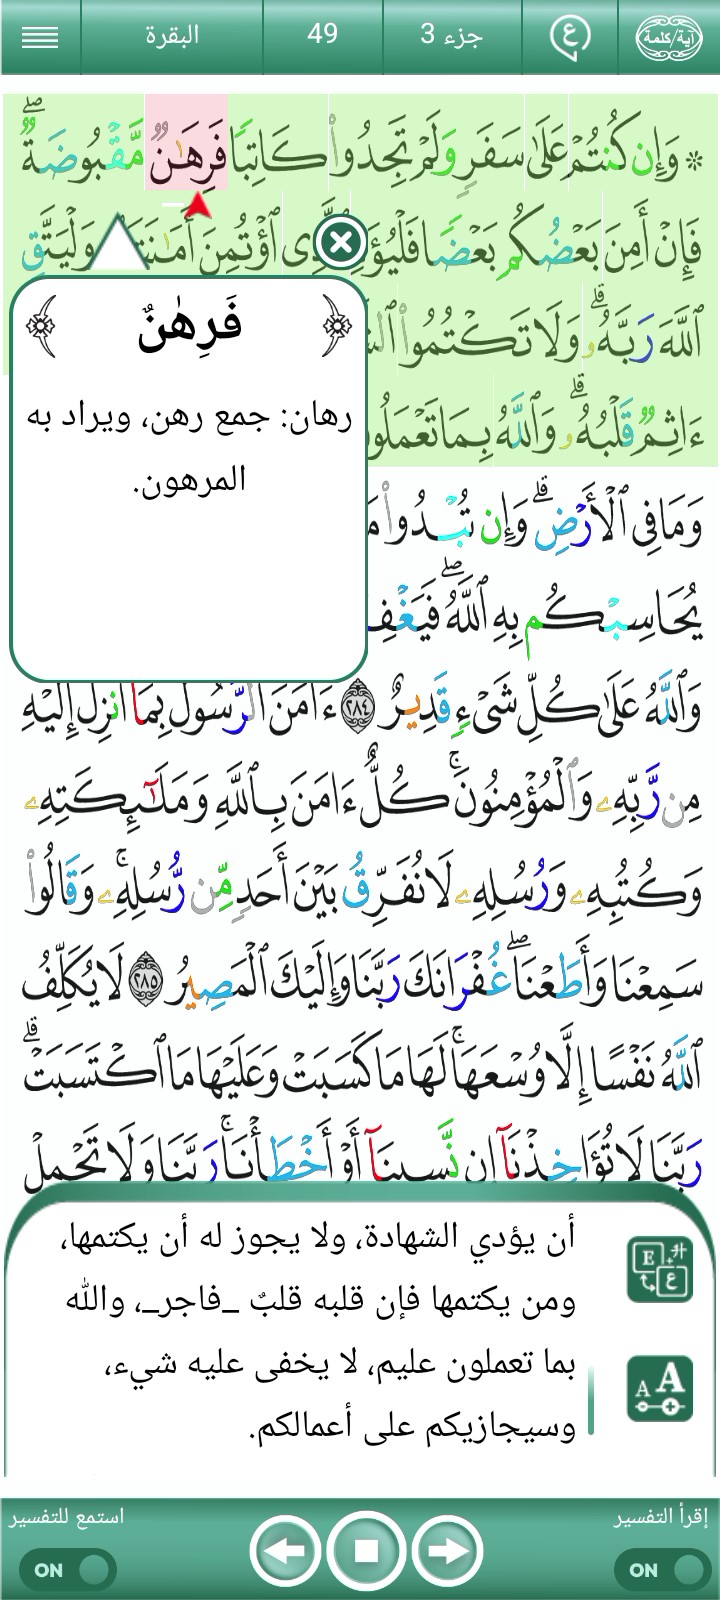 آية/كلمة
ع
جزء 3
49
البقرة
۞ وَإِن كُنتُمْ عَلَىٰ سَفَرٍ وَلَمْ تَجِدُوا۟ كَاتِبًا فَرِهَـٰنٌ مَّقْبُوضَةٌ ۖ
فَإِنْ أَمِنَ بَعْضُكُم بَعْضًا
ٱؤْتُمِنَ أَمَـٰنَتَهُۥ وَلْيَتَّقِ
ٱللَّهَ رَبَّهُۥ ۗ وَلَا تَكْتُمُوا۟
ءَاثِمٌ قَلْبُهُۥ ۗ وَٱللَّهُ بِمَا تَعْمَلُونَ
وَمَا فِى ٱلْأَرْضِ ۗ وَإِن تُبْدُوا۟
يُحَاسِبْكُم بِهِ ٱللَّهُ ۖ
وَٱللَّهُ عَلَىٰ كُلِّ شَىْءٍ قَدِيرٌ ٢٨٤ ءَامَنَ ٱلرَّسُولُ بِمَآ أُنزِلَ إِلَيْهِ
مِن رَّبِّهِۦ وَٱلْمُؤْمِنُونَ ۚ كُلٌّ ءَامَنَ بِٱللَّهِ وَمَلَـٰٓئِكَتِهِۦ
وَكُتُبِهِۦ وَرُسُلِهِۦ لَا نُفَرِّقُ بَيْنَ أَحَدٍ مِّن رُّسُلِهِۦ ۚ وَقَالُوا۟
سَمِعْنَا وَأَطَعْنَا ۖ غُفْرَانَكَ رَبَّنَا وَإِلَيْكَ ٱلْمَصِيرُ ٢٨٥ لَا يُكَلِّفُ
ٱللَّهُ نَفْسًا إِلَّا وُسْعَهَا ۚ لَهَا مَا كَسَبَتْ وَعَلَيْهَا مَا ٱكْتَسَبَتْ ۗ
رَبَّنَا لَا تُؤَاخِذْنَآ إِن نَّسِينَآ أَوْ أَخْطَأْنَا ۚ رَبَّنَا وَلَا تَحْمِلْ
فَرِهَٰنٌ
رهان: جمع رهن، ويراد به
المرهون.
أن يؤدي الشهادة، ولا يجوز له أن يكتمها،
ومن يكتمها فإن قلبه قلبٌ _فاجر_، والله
بما تعملون عليم، لا يخفى عليه شيء،
وسيجازيكم على أعمالكم.
إقرأ التفسير
ON
استمع للتفسير
ON